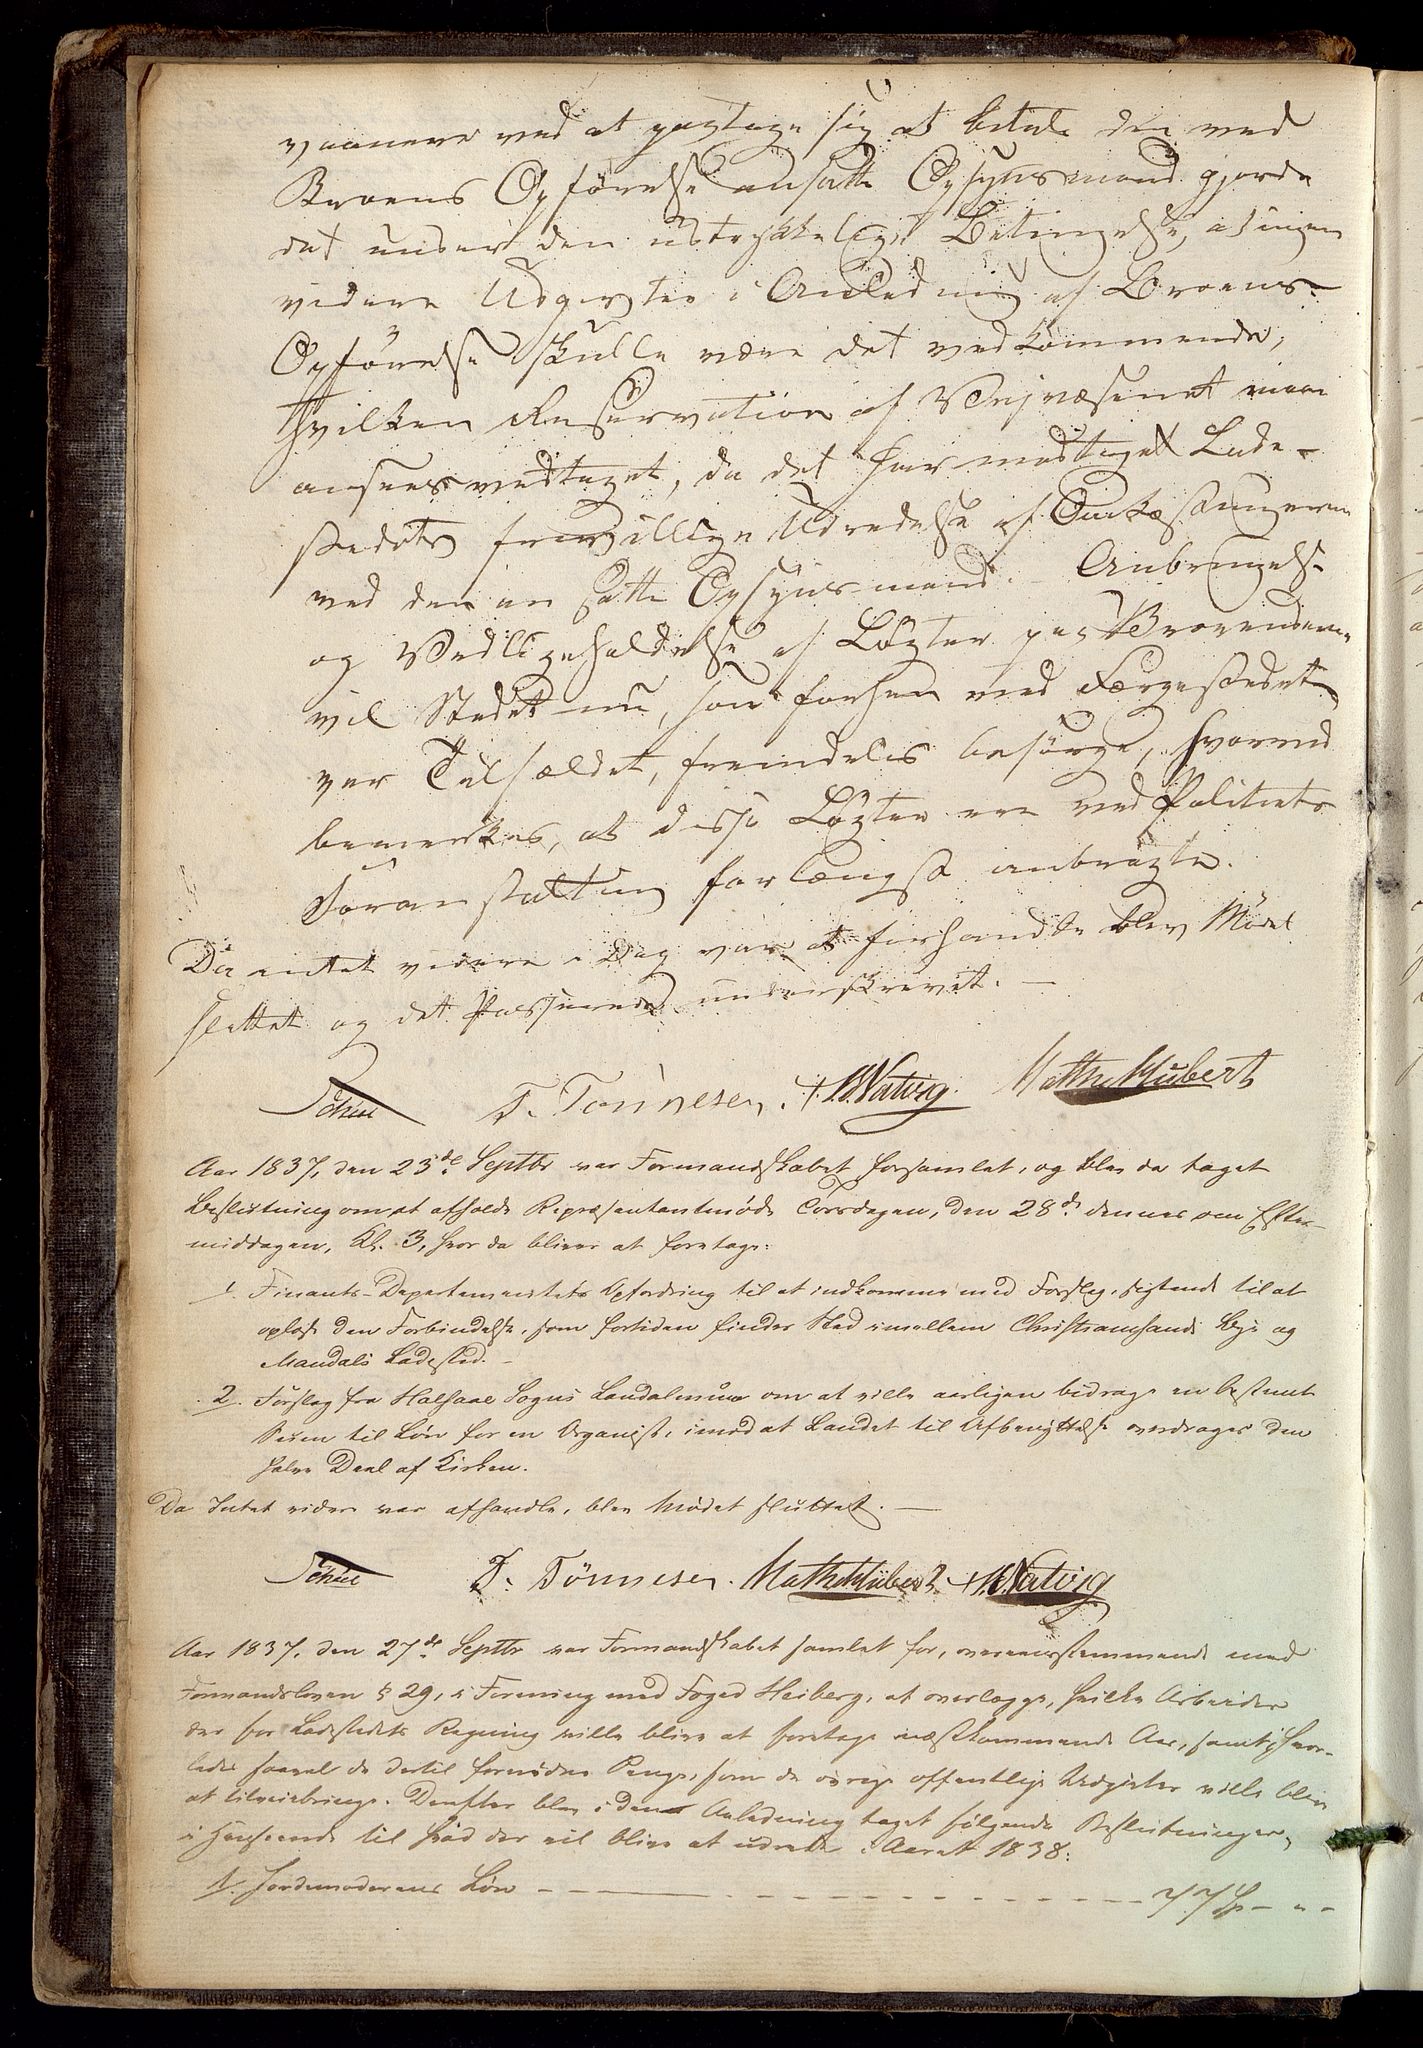 vaanere ved at paatage sig at betale den ved
Broens Opførelse ansatte Opsynsmand gjorde
det under den udtrykkelige Betingelse, at ingen
videre Udgivter i Anledning af Broens
Opførelse skulle være det vedkommende,
Hvilken Reservation af Veivæsenet maae
ansees vedtaget, da det har modtaget Lade-
stedets frivillige Udredelse af Omkostningerne
ved den an satte Opsynsmand. Anbringelse
og Vedligeholdelse af Løgter paa Broenderne
vil Stedet nu, som forhen ved Færgestedet
var Tilfældet, fremdeles besørge, hvorved
bemerkes, at disse Løgter ere ved Politiets
Foranstaltning forlængst anbragte.
Da intet videre i Dag var at forhandle blev Mødet
sluttet og det Passerede underskrevet. —
T. Tønnesen. Watvig. Math Hubert
Aar 1837, den 23de Septbr var Formandskabet forsamlet, og blev da taget
Beslutning om at afholde Repræsentantmøde Torsdagen, den 28de dennes om Efter-
middagen, Kl. 3, hvor da bliver at foretage:
1. Finants-Departementets Opfordring til at indkomme med Forslag, sigtende til at
opløse den Forbindelse, som fortiden finder Sted imellem Christiansands Bye og
Mandals Ladested. —
2. Forslag fra Halsaae Sogns Landalmue om at ville aarligen bidrage en bestemt
Summ til Løn for en Organist, imod at Landet til Afbenyttelse overdrages den
halve Deel af Kirken.
Da Intet videre var afhandle, blev Mødet sluttet. —
T. Tønnesen. Math Hubert Watvig
Aar 1837, den 27de Septbr var Formandskabet samlet for, overeensstemmende med
Formandsloven § 29, i Forening med Foged Heiberg, at overlægge, hvilke Arbeider
der for Ladestedets Regning ville blive at foretage næstkommende Aar, samt hvor-
ledes saavel de dertil fornødne Penge, som de øvrige offentlige Udgivter ville blive
at tilveiebringe. Derefter blev i den Anledning taget følgende Beslutninger,
i Henseende til hvad der vil blive at udrede i Aaret 1838:
1. Jordemoderens Løn — — — 77 Sp — " —